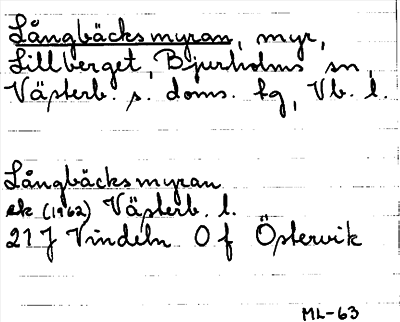 Långbäcksmyran, myr,
Lillberget, Bjurholms sn,
Västerb. s. doms. tg, Vb. l.
Långbäcksmyran
ek (1962) Västerb. l.
21J Vindeln 0 f Östervik
ML-63